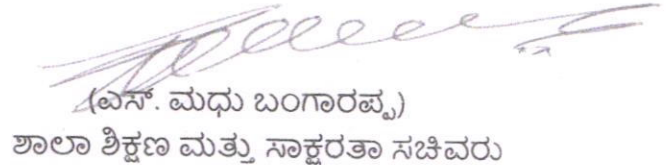 (ಎಸ್. ಮಧು ಬಂಗಾರಪ್ಪ)
ಶಾಲಾ ಶಿಕ್ಷಣ ಮತ್ತು ಸಾಕ್ಷರತಾ ಸಚಿವರು